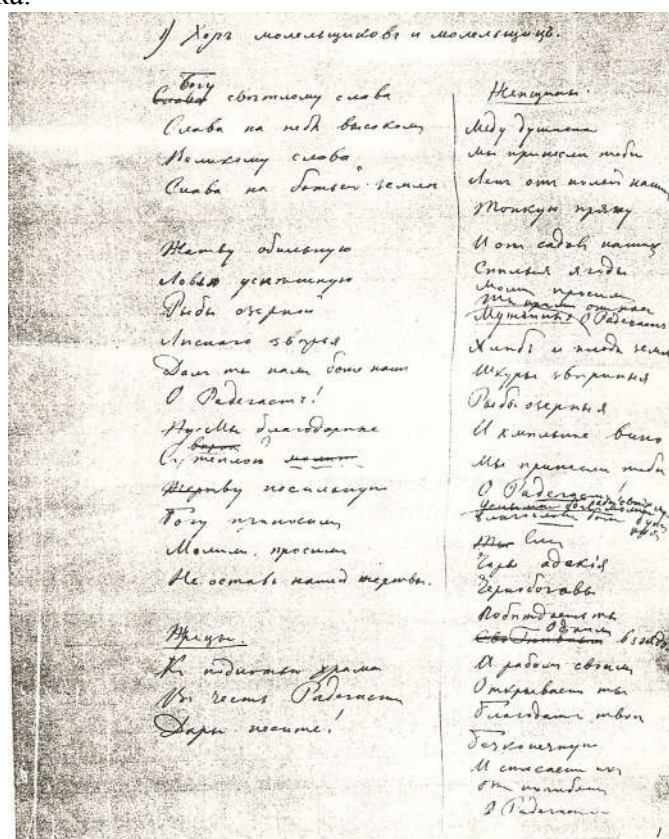 ка.
1) Хоръ молельщиковъ и молельщицъ.
Богу
свѣтлому слава
Слава на небѣ высокомъ
Великому слава
Слава на божьей землѣ
Жатву обильную
Ловлю успѣшную
Рыбы озерной
Лѣснаго звѣрья
Далъ ты намъ боже нашъ
О Радегастъ!
Мы благодарные
Съ теплою
Жертву посильную
Богу приносимъ
Молимъ, просимъ
Не оставь нашей жертвы.
Жрецы.
Къ подножью храма
Въ честь Радегаста
Дары несите!
Женщины.
Меду душмяна
Мы принесли тебѣ
Ленъ отъ полей нашихъ
Тонкую пряжу
И отъ садовъ нашихъ
Спѣлыя ягоды
Молимъ просимъ
О Радегастъ
Мущины
Хлѣбъ и плоды земли
Шкуры звѣриныя
Рыбы озерныя
И хмѣльное вино
Мы принесли тебѣ
О Радегастъ!
Чары адскія
Чернобоговы
Побѣждаешь ты
Однимъ
И рабомъ своимъ
Открываешь ты
Благодать твою
Безконечную
И спасаешь ихъ
отъ погибели
О Радегастъ